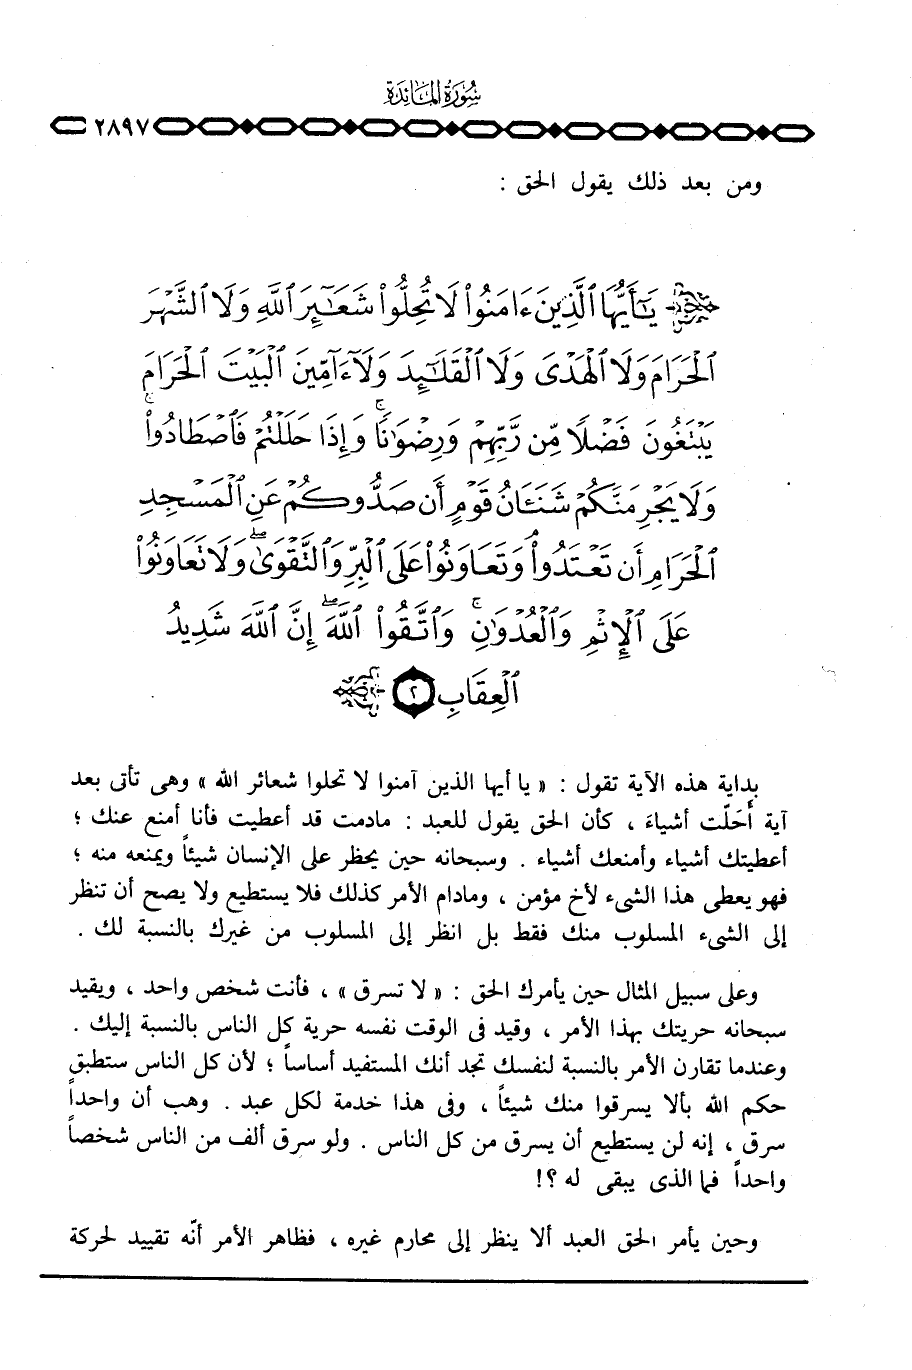 سورة المائدة
٢٨٩٧
ومن بعد ذلك يقول الحق :
يَٰٓأَيُّهَا ٱلَّذِينَ ءَامَنُوا۟ لَا تُحِلُّوا۟ شَعَٰٓئِرَ ٱللَّهِ وَلَا ٱلشَّهْرَ
ٱلْحَرَامَ وَلَا ٱلْهَدْىَ وَلَا ٱلْقَلَٰٓئِدَ وَلَآ ءَآمِّينَ ٱلْبَيْتَ ٱلْحَرَامَ
يَبْتَغُونَ فَضْلًا مِّن رَّبِّهِمْ وَرِضْوَٰنًا ۚ وَإِذَا حَلَلْتُمْ فَٱصْطَادُوا۟ ۚ
وَلَا يَجْرِمَنَّكُمْ شَنَـَٔانُ قَوْمٍ أَن صَدُّوكُمْ عَنِ ٱلْمَسْجِدِ
ٱلْحَرَامِ أَن تَعْتَدُوا۟ ۘ وَتَعَاوَنُوا۟ عَلَى ٱلْبِرِّ وَٱلتَّقْوَىٰ ۖ وَلَا تَعَاوَنُوا۟
عَلَى ٱلْإِثْمِ وَٱلْعُدْوَٰنِ ۚ وَٱتَّقُوا۟ ٱللَّهَ ۖ إِنَّ ٱللَّهَ شَدِيدُ
ٱلْعِقَابِ ٢
بداية هذه الآية تقول : « يا أيها الذين آمنوا لا تحلوا شعائر الله » وهى تأتى بعد
آية أَحَلّت أشياءَ ، كأن الحق يقول للعبد : مادمت قد أعطيت فأنا أمنع عنك ؛
أعطيتك أشياء وأمنعك أشياء . وسبحانه حين يحظر على الإنسان شيئاً ويمنعه منه ؛
فهو يعطى هذا الشىء لأخ مؤمن ، ومادام الأمر كذلك فلا يستطيع ولا يصح أن تنظر
إلى الشىء المسلوب منك فقط بل انظر إلى المسلوب من غيرك بالنسبة لك .
وعلى سبيل المثال حين يأمرك الحق : « لا تسرق » ، فأنت شخص واحد ، ويقيد
سبحانه حريتك بهذا الأمر ، وقيد فى الوقت نفسه حرية كل الناس بالنسبة إليك .
وعندما تقارن الأمر بالنسبة لنفسك تجد أنك المستفيد أساساً ؛ لأن كل الناس ستطبق
حكم الله بألا يسرقوا منك شيئاً ، وفى هذا خدمة لكل عبد . وهب أن واحداً
سرق ، إنه لن يستطيع أن يسرق من كل الناس . ولو سرق ألف من الناس شخصاً
واحداً فما الذى يبقى له ؟!
وحين يأمر الحق العبد ألا ينظر إلى محارم غيره ، فظاهر الأمر أنّه تقييد لحركة